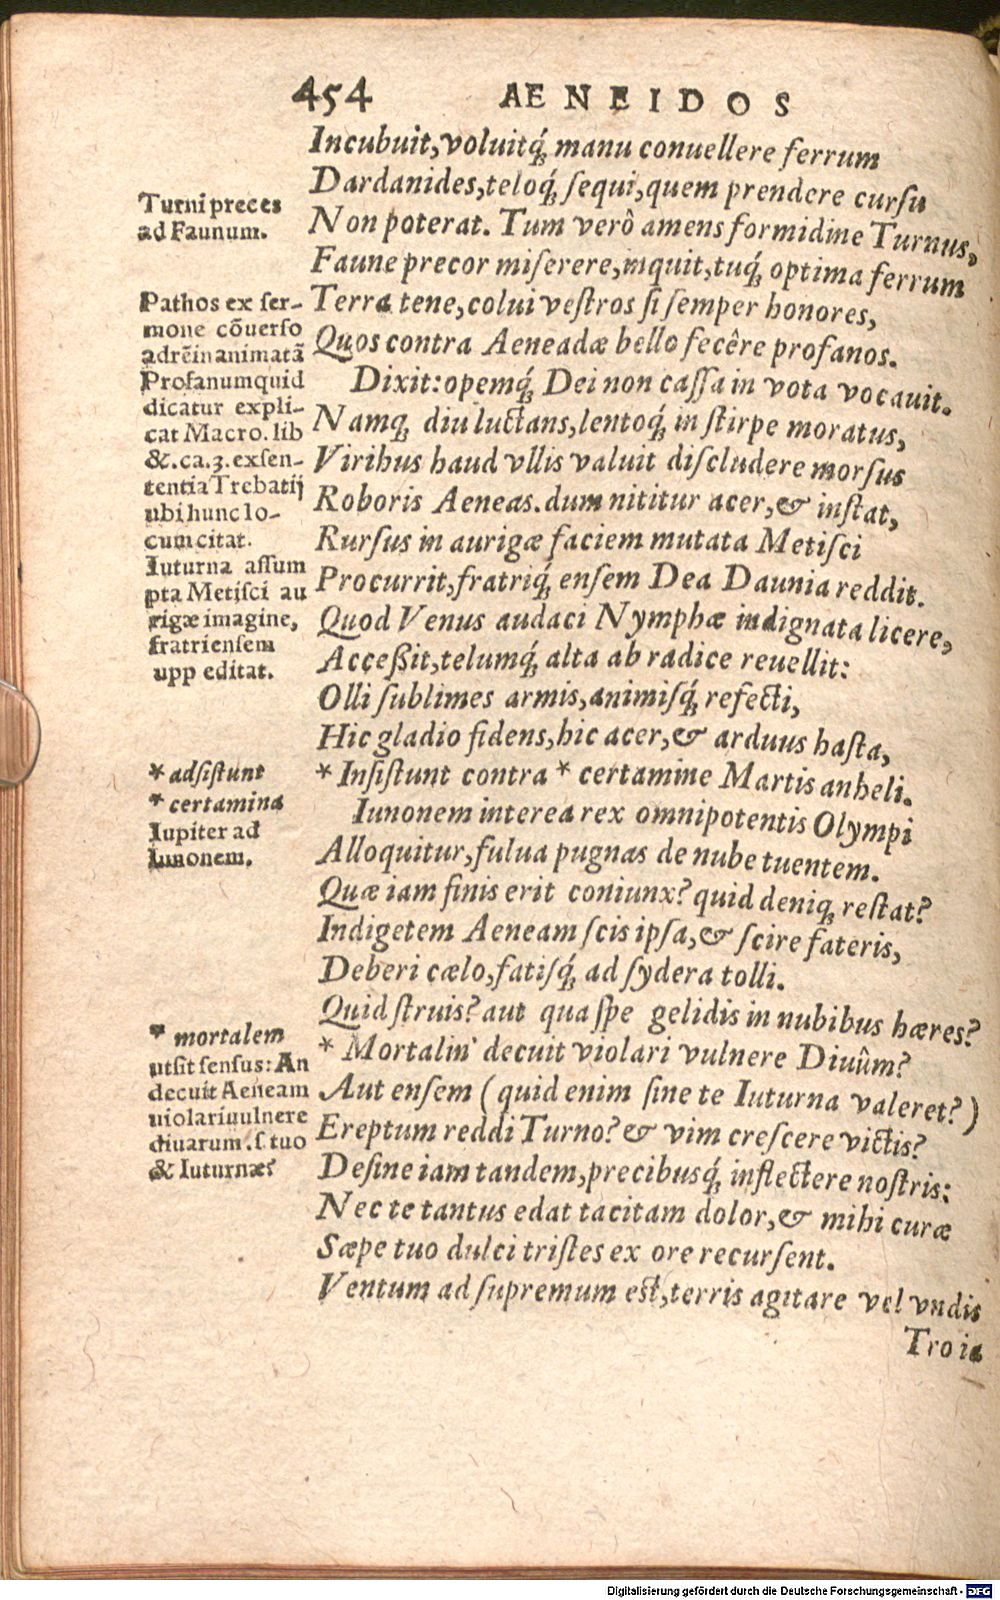 454 AENEIDOS
Incubuit, voluitq́; manu conuellere ferrum
Dardanides, teloq́; sequi, quem prendere cursu
Turni preces
ad Faunum.
Non poterat. Tum verò amens formidine Turnus,
Faune precor miserere, inquit, tuq́; optima ferrum
Terra tene, colui vestros si semper honores,
Quos contra Aeneadæ bello fecêre profanos.
Pathos ex ser-
mone cōuerso
adrēinanimatā
Profanumquid
dicatur expli-
cat Macro. lib
&. ca. 3. exsen-
tentia Trebatij
ubi hunc lo-
cum citat.
Dixit: opemq́; Dei non cassa in vota vocauit.
Namq; diu luctans, lentoq́; in stirpe moratus,
Viribus haud vllis valuit discludere morsus
Roboris Aeneas. dum nititur acer, & instat,
Rursus in aurigæ faciem mutata Metisci
Procurrit, fratriq́; ensem Dea Daunia reddit.
Iuturna assum
pta Metisci au
rigæ imagine,
fratri ensem
upp editat.
Quod Venus audaci Nymphæ indignata licere,
Acceßit, telumq́; alta ab radice reuellit:
Olli sublimes armis, animisq́; refecti,
Hic gladio fidens, hic acer, & arduus hasta,
* Insistunt contra * certamine Martis anheli.
* adsistunt
* certamina
Iunonem interea rex omnipotentis Olympi
Alloquitur, fulua pugnas de nube tuentem.
Iupiter ad
Iunonem.
Quæ iam finis erit coniunx? quid deniq; restat?
Indigetem Aeneam scis ipsa, & scire fateris,
Deberi cælo, fatisq́; ad sydera tolli.
Quid struis? aut qua spe gelidis in nubibus hæres?
* Mortalin' decuit violari vulnere Diuûm?
* mortalem
ut sit sensus: An
decuit Aeneam
uiolari uulnere
diuarum .s. tuo
& Iuturnæ?
Aut ensem (quid enim sine te Iuturna valeret?)
Ereptum reddi Turno? & vim crescere victis?
Desine iam tandem, precibusq́; inflectere nostris:
Nec te tantus edat tacitam dolor, & mihi curæ
Sæpe tuo dulci tristes ex ore recursent.
Ventum ad supremum est, terris agitare vel vndis
Troia
Digitalisierung gefördert durch die Deutsche Forschungsgemeinschaft - DFG